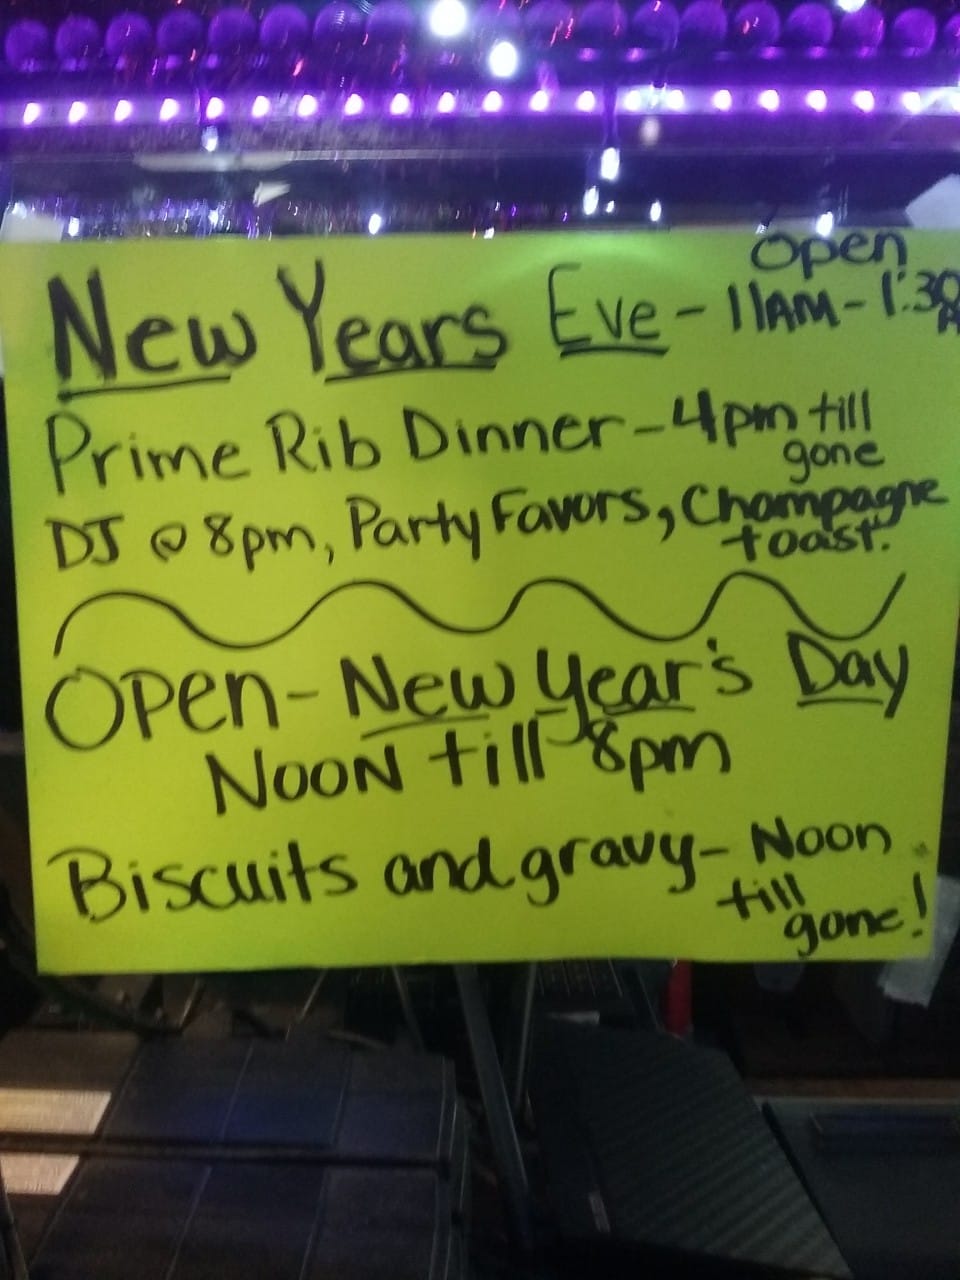 New Years Eve - Open 11AM - 1:30 A
Prime Rib Dinner - 4pm till gone
DJ @ 8pm, Party Favors, Champagne toast.
Open - New Year's Day
Noon till 8pm
Biscuits and gravy - Noon till gone!